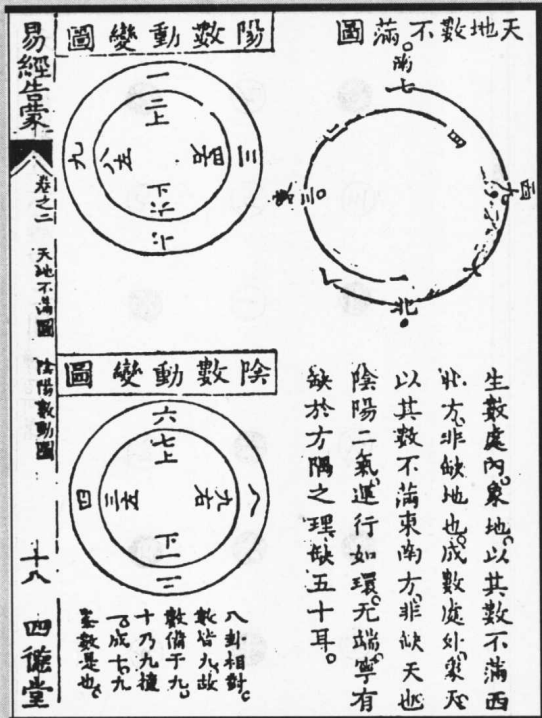 天地數不滿圖
南
七
二
四
九
西
三
六
一
北
八
生數處內象地以其數不滿西
北方非缺地也成數處外象天
以其數不滿東南方非缺天也
陰陽二氣運行如環无端寧有
缺於方隅之理缺五十耳
陽數動變圖
一
二上
三
四右
九
八左
下六
陰數動變圖
六
七上
八
九右
四
三左
下一
二
八卦相對
數皆九故
數備于九
十乃九
成七九
數是也
易經告蒙
卷之二
天地不滿圖
陰陽數動圖
十八
四德堂